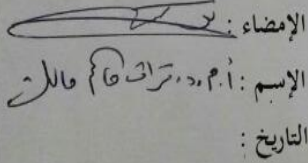 الإمضاء :
الإسم : أ.م.د. تراث حاكم مالك
التاريخ :